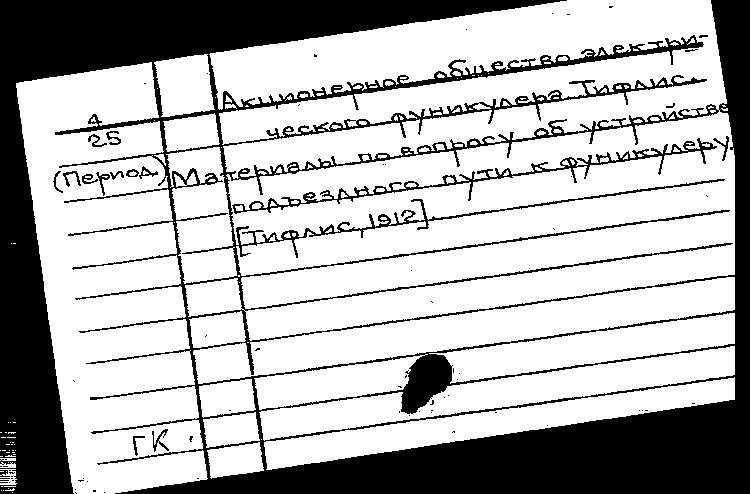 Акционерное общество электри-
4
25
ческого фуникулера Тифлис.
(Период.) Материалы по вопросу об устройстве
подъездного пути к фуникулеру.
[Тифлис, 1912].
ГК.